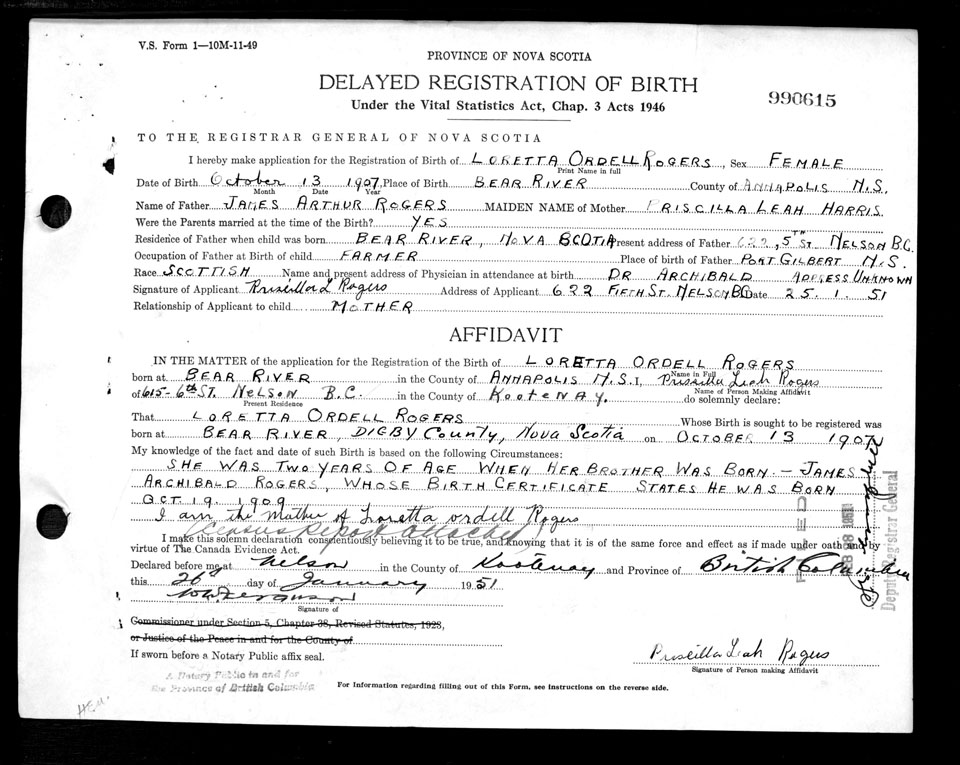 V.S. Form 1—10M-11-49
PROVINCE OF NOVA SCOTIA
DELAYED REGISTRATION OF BIRTH
990615
Under the Vital Statistics Act, Chap. 3 Acts 1946
TO THE REGISTRAR GENERAL OF NOVA SCOTIA
I hereby make application for the Registration of Birth of LORETTA ORDELL ROGERS, Sex FEMALE
Print Name in full
Date of Birth October 13 1907, Place of Birth BEAR RIVER County of ANNAPOLIS N.S.
Month Date Year
Name of Father JAMES ARTHUR ROGERS MAIDEN NAME of Mother PRISCILLA LEAH HARRIS.
Were the Parents married at the time of the Birth? YES
Residence of Father when child was born BEAR RIVER, NOVA SCOTIA Present address of Father 622, 5TH ST. NELSON B.C.
Occupation of Father at Birth of child FARMER Place of birth of Father PORT GILBERT N.S.
Race SCOTTISH Name and present address of Physician in attendance at birth DR ARCHIBALD ADDRESS UNKNOWN
Signature of Applicant Priscilla L Rogers Address of Applicant 622 FIFTH ST. NELSON BC Date 25. 1. 51
Relationship of Applicant to child MOTHER
AFFIDAVIT
IN THE MATTER of the application for the Registration of the Birth of LORETTA ORDELL ROGERS
Name in Full
born at BEAR RIVER in the County of ANNAPOLIS N.S. I, Priscilla Leah Rogers
Name of Person Making Affidavit
of 615-6th ST. NELSON B.C. in the County of KOOTENAY. do solemnly declare:
Present Residence
That LORETTA ORDELL ROGERS Whose Birth is sought to be registered was
born at BEAR RIVER, DIGBY COUNTY, NOVA SCOTIA on OCTOBER 13 1907
My knowledge of the fact and date of such Birth is based on the following Circumstances:
SHE WAS TWO YEARS OF AGE WHEN HER BROTHER WAS BORN. - JAMES
ARCHIBALD ROGERS, WHOSE BIRTH CERTIFICATE STATES HE WAS BORN
OCT 19. 1909
I am the Mother of Loretta ordell Rogers
Census Report attached
I make this solemn declaration conscientiously believing it to be true, and knowing that it is of the same force and effect as if made under oath and by
virtue of The Canada Evidence Act.
Declared before me at Nelson in the County of Kootenay and Province of British Columbia
this 26th day of January 1951
Signature of
Commissioner under Section 5, Chapter 38, Revised Statutes, 1923,
or Justice of the Peace in and for the County of
If sworn before a Notary Public affix seal.
Priscilla Leah Rogers
Signature of Person making Affidavit
A Notary Public in and for
the Province of British Columbia
For Information regarding filling out of this Form, see instructions on the reverse side.
Deputy Registrar General